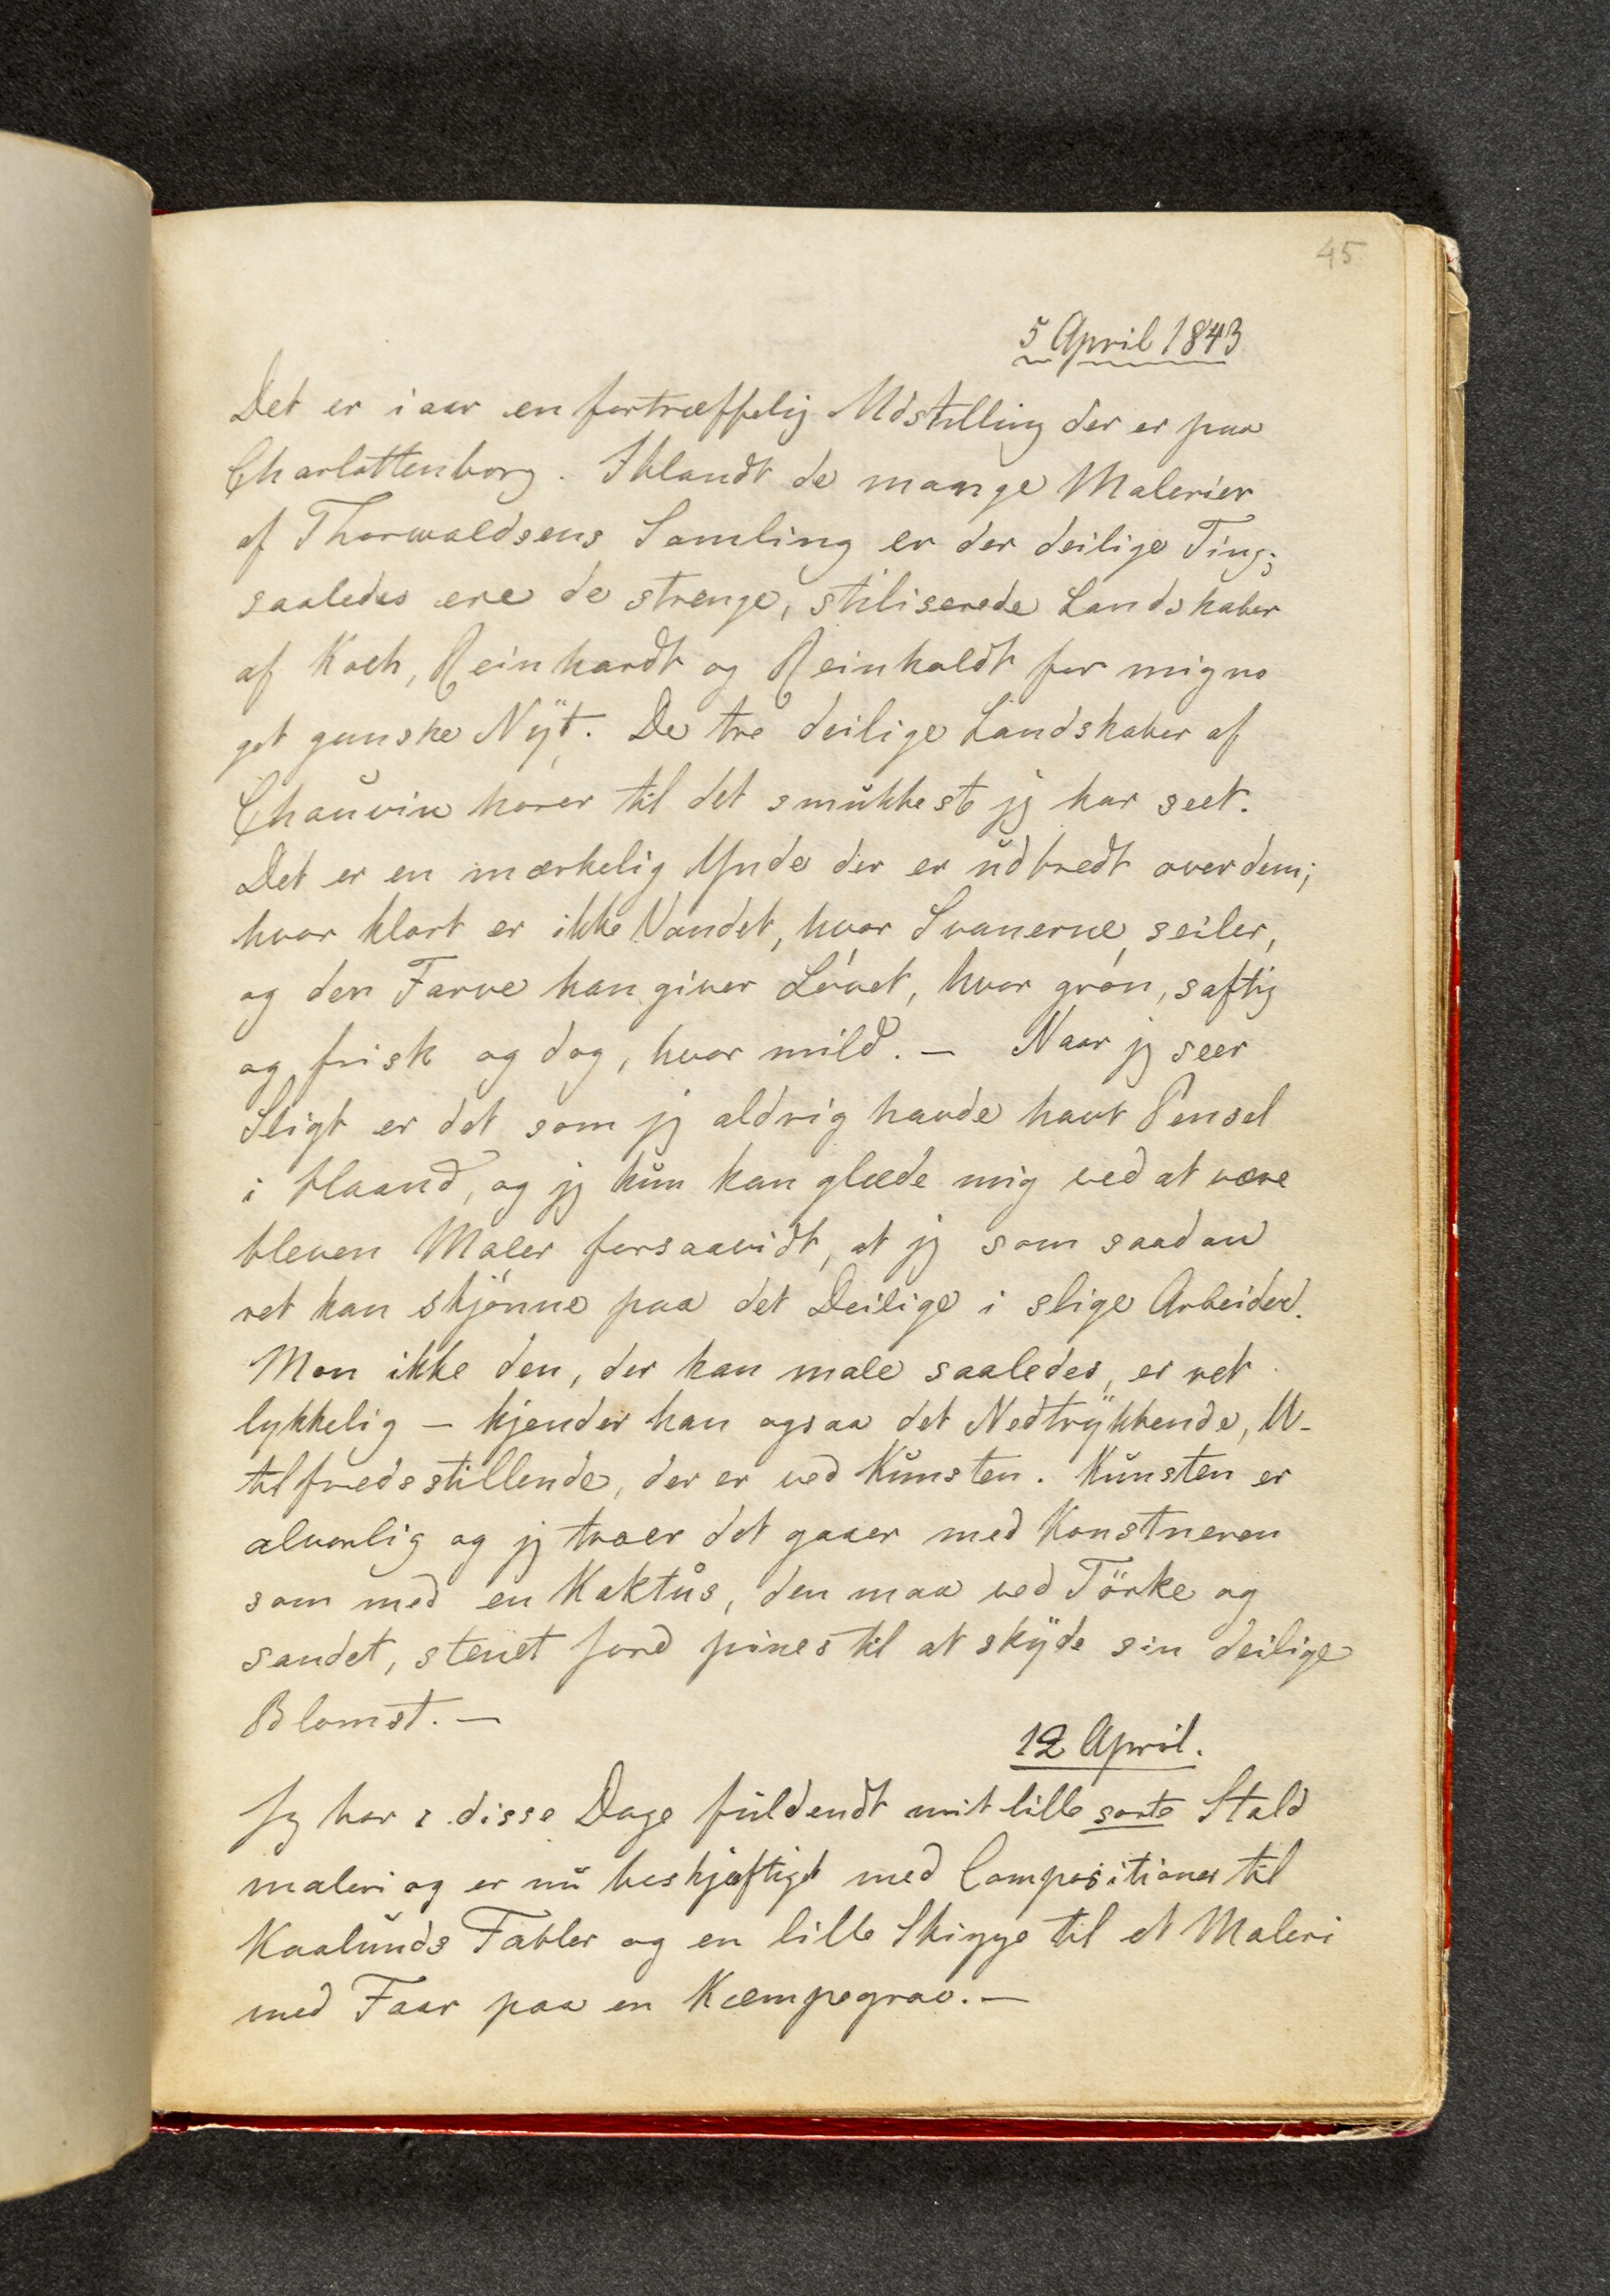 45
5 April 1843
Det er i aar en fortræffelig Udstilling der er paa
Charlottenborg. Iblandt de mange Malerier
af Thorwaldsens Samling er der deilige Ting;
saaledes ere de strenge, stiliserede Landskaber
af Koch, Reinhardt og Reinholdt for mig no
get ganske Nyt. De tre deilige Landskaber af
Chauvin hører til det smukkeste jeg har seet.
Det er en mærkelig Ynde der er udbredt over dem;
hvor klart er ikke Vandet, hvor Svanerne seiler,
og den Farve han giver Løvet, hvor grøn, saftig
og frisk og dog, hvor mild. – Naar jeg seer
Sligt er det som jeg aldrig havde havt Pensel
i Haand, og jeg kun kan glæde mig ved at være
bleven Maler forsaavidt, at jeg som saadan
ret kan skjønne paa det Deilige i slige Arbeider.
Mon ikke den, der kan male saaledes, er ret
lykkelig – kjender han ogsaa det Nedtrykkende, U-
tilfredsstillende, der er ved Kunsten. Kunsten er
alvorlig og jeg troer det gaaer med Konstneren
som med en Kaktus, den maa ved Törke og
sandet, stenet Jord pines til at skyde sin deilige
Blomst. –
12 April.
Jeg har i disse Dage fuldendt mit lille sorte Stald
maleri og er nu beskjæftiget med Compositioner til
Kaalunds Fabler og en lille Skizze til et Maleri
med Faar paa en Kæmpegrav. –